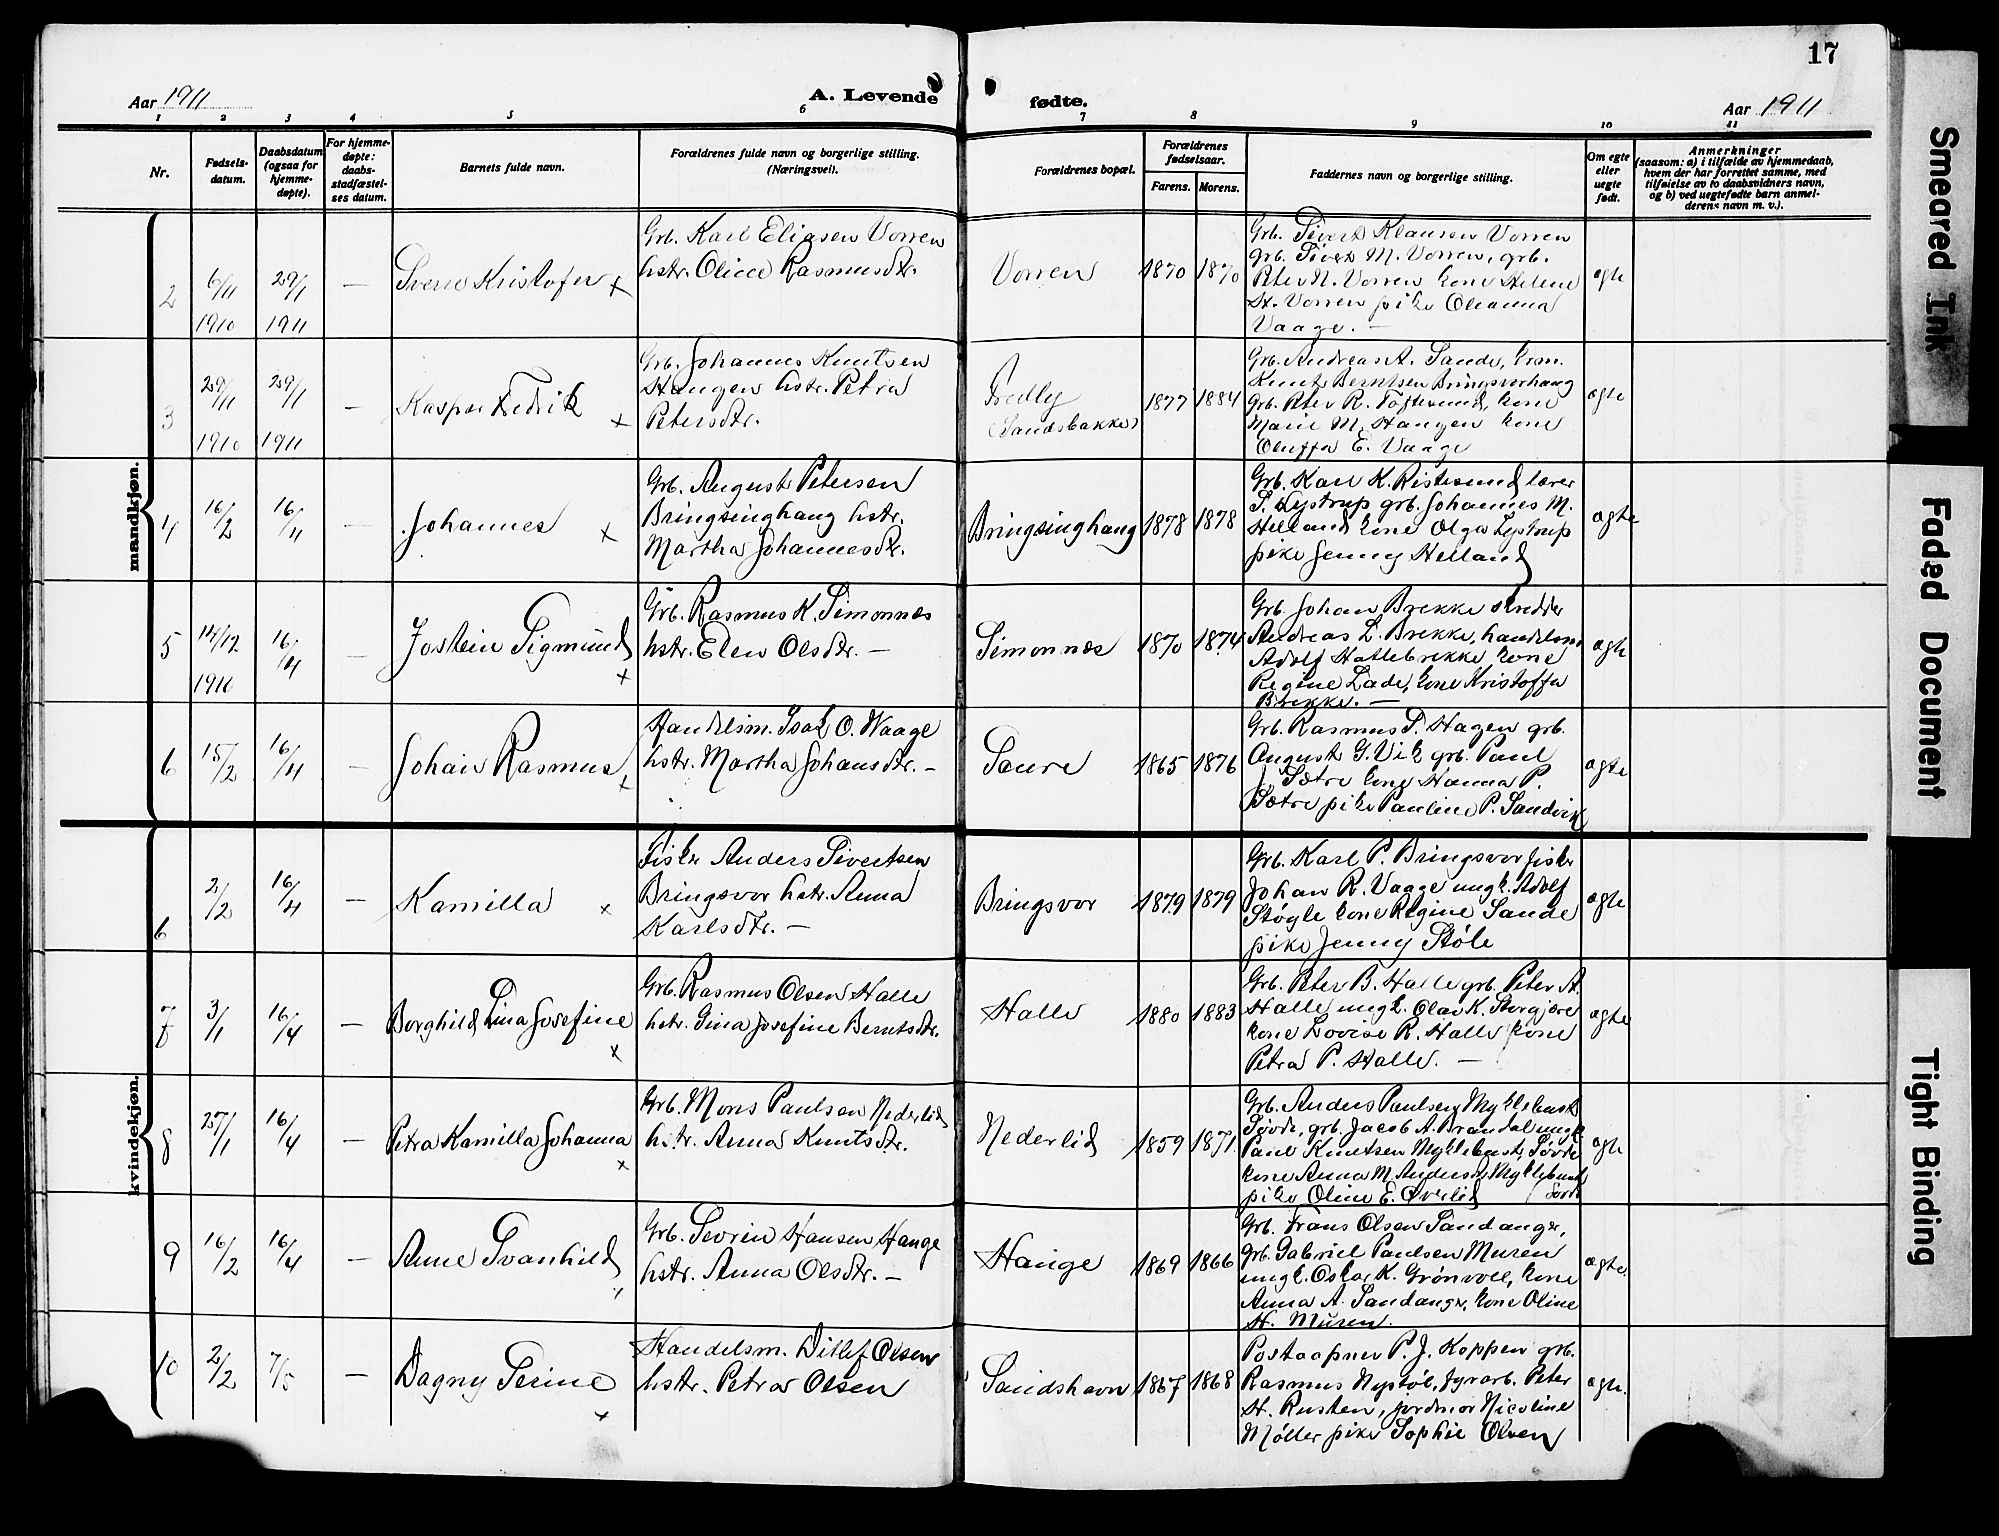 17
Aar 1911
A. Levende
fødte.
Aar 1911
1 2 3 4 5 6 7 8 9 10 11
Nr.
Fødsels-
datum.
Daabsdatum
(ogsaa for
hjemme-
døpte).
For hjemme-
døpte:
daabs-
stadfæstel-
ses datum.
Barnets fulde navn.
Forældrenes fulde navn og borgerlige stilling.
(Næringsvei).
Forældrenes bopæl.
Forældrenes
fødselsaar.
Farens. Morens.
Faddernes navn og borgerlige stilling.
Om egte
eller
uegte
født.
Anmerkninger
(saasom: a) i tilfælde av hjemmedaab,
hvem der har forrettet samme, med
tilføielse av to daabsvidners navn,
og b) ved uegtefødte barn anmel-
derens navn m. v.).
mandkjøn.
2
6/11
1910
29/1
1911
—
Sverre Kristofer x
Grb. Karl Eliasen Vorren
hstr. Oline Rasmusdtr.
Vorren
1870
1870
Grb. Sivert Klausen Vorren
grb. Sivert M. Vorren, grb.
Peter N. Vorren kone Helene
H. Vorren pike Oleanna
Vaage. —
ægte
3
29/11
1910
29/1
1911
—
Kaspar Fedrik x
Grb. Johannes Knutsen
Haugen hstr. Petra
Petersdtr.
Fredly
(Sandsbakke)
1877
1884
Grb. Andreas A. Sande, krm.
Knut Berntsen Bringsverhaug
Grb. Peter R. Toftesund, kone
Marie M. Haugen kone
Oluffa E. Vaage
ægte
4
16/2
16/4
—
Johannes x
Grb. August Petersen
Bringsinghaug hstr.
Martha Johannesdtr.
Bringsinghaug
1878
1878
Grb. Karl K. Ristesund lærer
S. Lystrup grb. Johannes M.
Helland kone Olga Lystrup
pike Jenny Helland
ægte
5
14/12
1910
16/4
—
Jostein Sigmund x
Grb. Rasmus K. Simonnæs
hstr. Elen Olsdtr. —
Simonnæs
1870
1874
Grb. Johan Brekke skredder
Andreas L. Brekke, handelsm.
Adolf Hallebrekke kone
Regine Lade, kone Kristoffa
Brekke. —
ægte
6
15/2
16/4
—
Johan Rasmus x
Handelsm. Isak O. Waage
hstr. Martha Johansdtr. —
Saure
1865
1876
Grb. Rasmus P. Hagen grb.
August G. Vik grb. Paul
J. Sætre kone Hanna P.
Sætre pike Pauline P. Sandvik
ægte
kvindekjøn.
6
2/2
16/4
—
Kamilla x
Fisker Anders Sivertsen
Bringsvor hstr. Anna
Karlsdtr. —
Bringsvor
1879
1879
Grb. Karl P. Bringsvor fisker
Johan R. Vaage ungk. Adolf
Støyle kone Regine Sande
pike Jenny Støle
ægte
7
3/1
16/4
—
Borghild Lina Josefine x
Grb. Rasmus Olsen Halle
hstr. Gina Josefine Berntsdtr.
Halle
1880
1883
Grb. Peter B. Halle grb. Peter A.
Halle, ungk. Olav K. Storgjøre
kone Lovise R. Halle kone
Petra P. Halle. —
ægte
8
25/1
16/4
—
Petra Kamilla Johanna x
Grb. Mons Paulsen Nederlid
hstr. Anna Knutsdtr.
Nederlid
1859
1871
Grb. Anders Paulsen Myklebust
Søvde, grb. Jacob A. Brandal ungk
Paul Knutsen Myklebust, Søvde
kone Anna M. Andersd. Myklebust
pike Oline E. Øverlid (Søvde
ægte
9
16/2
16/4
—
Anne Svanhild
Grb. Sevrin Hansen Hauge
hstr. Anna Olsdtr. —
Hauge
1869
1866
Grb. Frans Olsen Sandanger,
grb. Gabriel Paulsen Muren
ungk. Oskar K. Grønvoll, kone
Anna A. Sandanger, kone Oline
H. Muren.
ægte.
10
2/2
7/5
—
Dagny Perine x
Handelsm. Ditlef Olsen
hstr. Petra Olsen
Sandshavn
1867
1868
Postaapner P. J. Koppen grb.
Rasmus Nystøl, fyrarb. Peter
H. Rusten, jordmor Nicoline
Møller pike Sophie Olsen
ægte.
Smeared Ink
Faded Document
Tight Binding